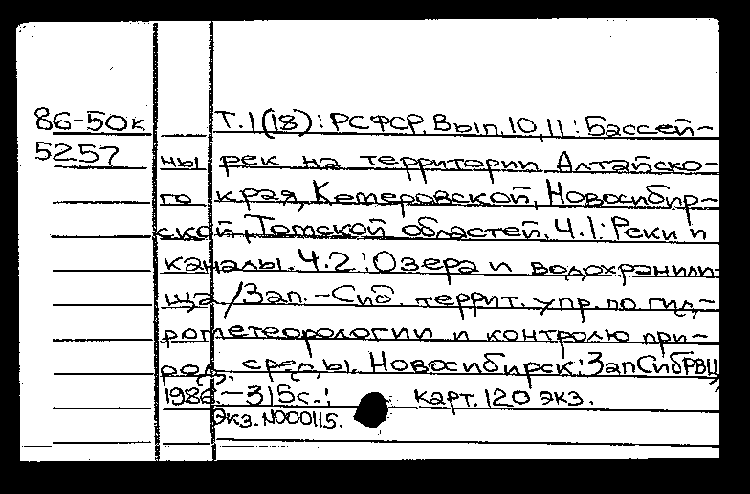 86-50к Т.1(18): РСФСР. Вып. 10, 11: Бассей-
5257 ны рек на территории Алтайско-
го края, Кемеровской, Новосибир-
ской, Томской областей. Ч.1: Реки и
каналы. Ч.2: Озера и водохранили-
ща / Зап.-Сиб. террит. упр. по гид-
рометеорологии и контролю при-
род. среды. Новосибирск: ЗапСибРВЦ,
1986. - 315с.: карт. 120 экз.
Экз. N00115.